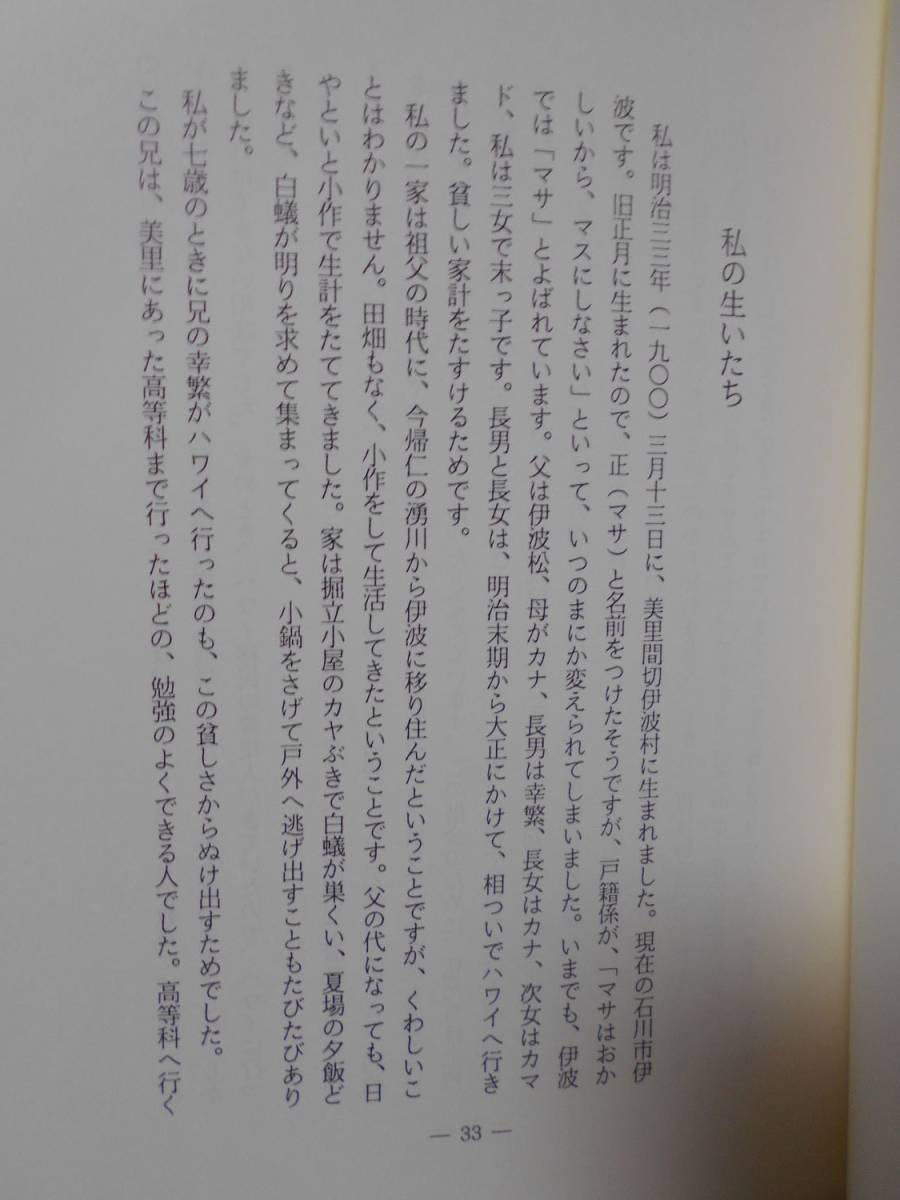 私の生いたち
私は明治三三年（一九〇〇）三月十三日に、美里間切伊波村に生まれました。現在の石川市伊
波です。旧正月に生まれたので、正（マサ）と名前をつけたそうですが、戸籍係が、「マサはおか
しいから、マスにしなさい」といって、いつのまにか変えられてしまいました。いまでも、伊波
では「マサ」とよばれています。父は伊波松、母がカナ、長男は幸繁、長女はカナ、次女はカマ
ド、私は三女で末っ子です。長男と長女は、明治末期から大正にかけて、相ついでハワイへ行き
ました。貧しい家計をたすけるためです。
私の一家は祖父の時代に、今帰仁の湧川から伊波に移り住んだということですが、くわしいこ
とはわかりません。田畑もなく、小作をして生活してきたということです。父の代になっても、日
やといと小作で生計をたててきました。家は掘立小屋のカヤぶきで白蟻が巣くい、夏場の夕飯ど
きなど、白蟻が明りを求めて集まってくると、小鍋をさげて戸外へ逃げ出すこともたびたびあり
ました。
私が七歳のときに兄の幸繁がハワイへ行ったのも、この貧しさからぬけ出すためでした。
この兄は、美里にあった高等科まで行ったほどの、勉強のよくできる人でした。高等科へ行く
— 33 —